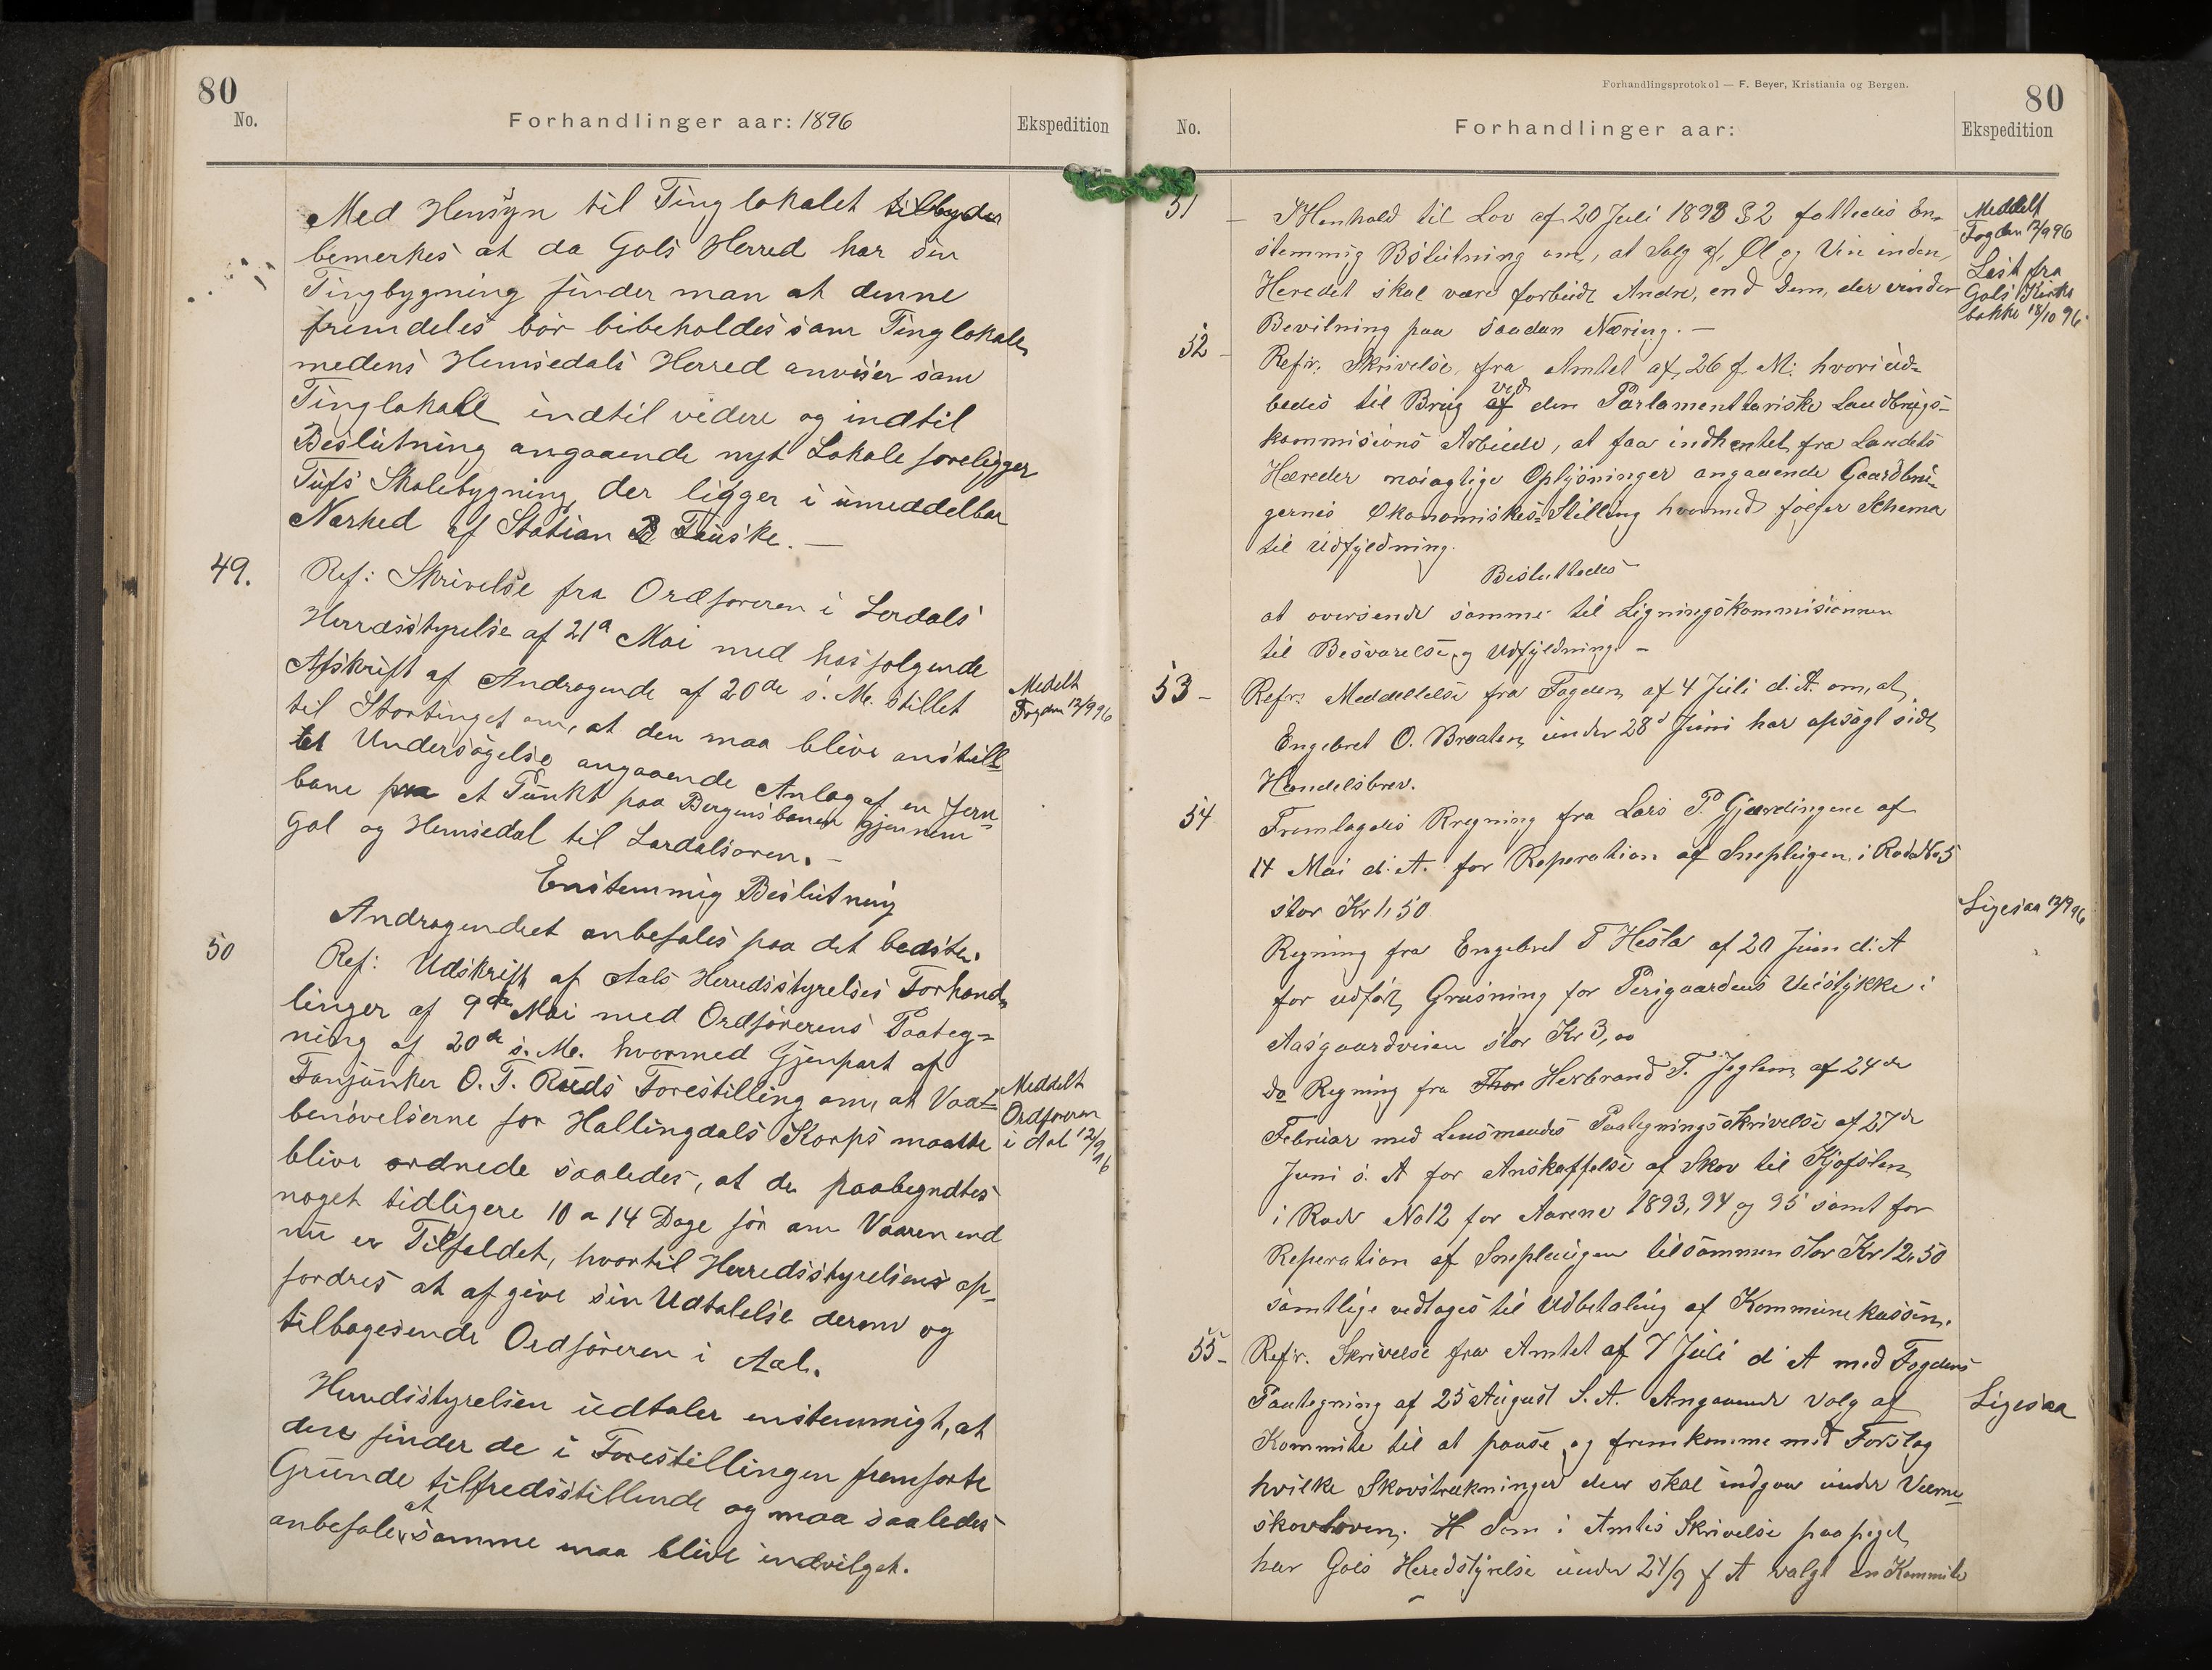 80
No.
Forhandlinger aar: 1896
Ekspedition
Med Hensyn til Tinglokalet tilbydes
bemerkes at da Gols Herred har sin
Tingbygning finder man at denne
fremdeles bör bibeholdes som Tinglokale,
medens Hemsedals Herred anviser som
Tinglokale indtil videre og indtil
Beslutning angaaende nyt Lokale foreligger
Tufs Skolebygning, der ligger i umeddelbar
Nærhed af Station Fauske. —
49.
Ref: Skrivelse fra Ordföreren i Lerdals
Herredsstyrelse af 21a Mai med hosfølgende
Afskrift af Andragende af 20de s. M. stillet
til Stortinget om, at den maa blive anstill-
et Undersögelse angaaende Anlæg af en Jern-
bane paa et Punkt paa Bergensbanen gjennem
Gol og Hemsedal til Lærdalsøren. —
Medelt
Fogden 12/9 96
Enstemmig Beslutning
Andragendet anbefales paa det bedste.
50
Ref: Udskrift af Aals Herredsstyrelses Forhand-
linger af 9de Mai med Ordförerens Paateg-
ning af 20de s. M. hvormed Gjenpart af
Fanjunker O. T. Ruds Forestilling om, at Vaa-
benövelserne for Hallingdals Korps maatte
blive ordnede saaledes, at de paabegyndtes
noget tidligere 10 a 14 Dage för om Vaaren end
nu er Tilfældet, hvortil Herredsstyrelsens op-
fordres at afgive sin Udtalelse derom og
tilbagesende Ordföreren i Aal.
Meddelt
Ordföreren
i Aal 12/9
96
Herredsstyrelsen udtaler enstemmigt, at
den finder de i Forestillingen fremførte
Grunde tilfredsstillende og maa saaledes
anbefale at samme maa blive indvilget.
Forhandlingsprotokol — F. Beyer, Kristiania og Bergen.
80
No.
Forhandlinger aar:
Ekspedition
51 —
I Henhold til Lov af 20 Juli 1893 § 2 fattedes En-
stemmig Bslutning om, at Salg af Øl og Vin inden
Heredet skal være forbudt Andre, end Dem, der vinder
Bevilning paa saadan Næring. —
Meddelt
Fogden 12/9 96
Læst fra
Gols Kirke
bakke 18/10 96
52 -
Refr. Skrivelse fra Amtet af 26 f. M: hvori ud-
bedes til Brug af ved den Parlamenttariske Landbrugs-
kommisions Arbeide, at faa indhentet fra Landets
Hereder nöiagtige Oplysninger angaaende Gaardbru-
gernes Økonomiskes-Stilling hvormed følger Schema
til Udfyldning.
Besluttedes
at oversende samme til Ligningskommisionnen
til Besvarelse og Udfyldning. -
53 -
Refr. Meddellelse fra Fogden af 4 Juli d. A. om, at
Engebret O. Braaten under 28d Juni har opsagt sidt
Handelsbrev.
54
Fremlagdes Rregning fra Lars P. Gjærdingene af
14 Mai d. A. for Reperation af Sneplugen i Rode No 5
stor Kr 1,50
Regning fra Engebret T Hesla af 20 Juni d. A
for udfört Grusning for Perigaardens Veistykke i
Aasgaardveien stor Kr 3,00
do Regning fra Thor Herbrand T. Jeglem af 24de
Februar med Lensmandes Paategningsskrivelse af 27de
Juni s. A for Anskaffelse af Skov til
i Rode No 12 for Aarene 1893, 94 og 95 samt for
Reperation af Sneplaugen tilsammen stor Kr 12,50
samtlige vedtoges til Udbetaling af Kommunekassen.
Ligesaa 12/9 96
55 -
Refr. Skrivelse fra Amtet af 7 Juli d A med Fogdens
Paategning af 25 August S. A. Angaaende Valg af
Kommite til at paase og fremkomme med Forslag
hvilke Skovstrækninger der skal indgaa under Værne-
skovloven. H Som i Amtes Skrivelse paapeget
har Gols Heredstyrelse under 24/9 f A valgt en Kommite
Ligesaa